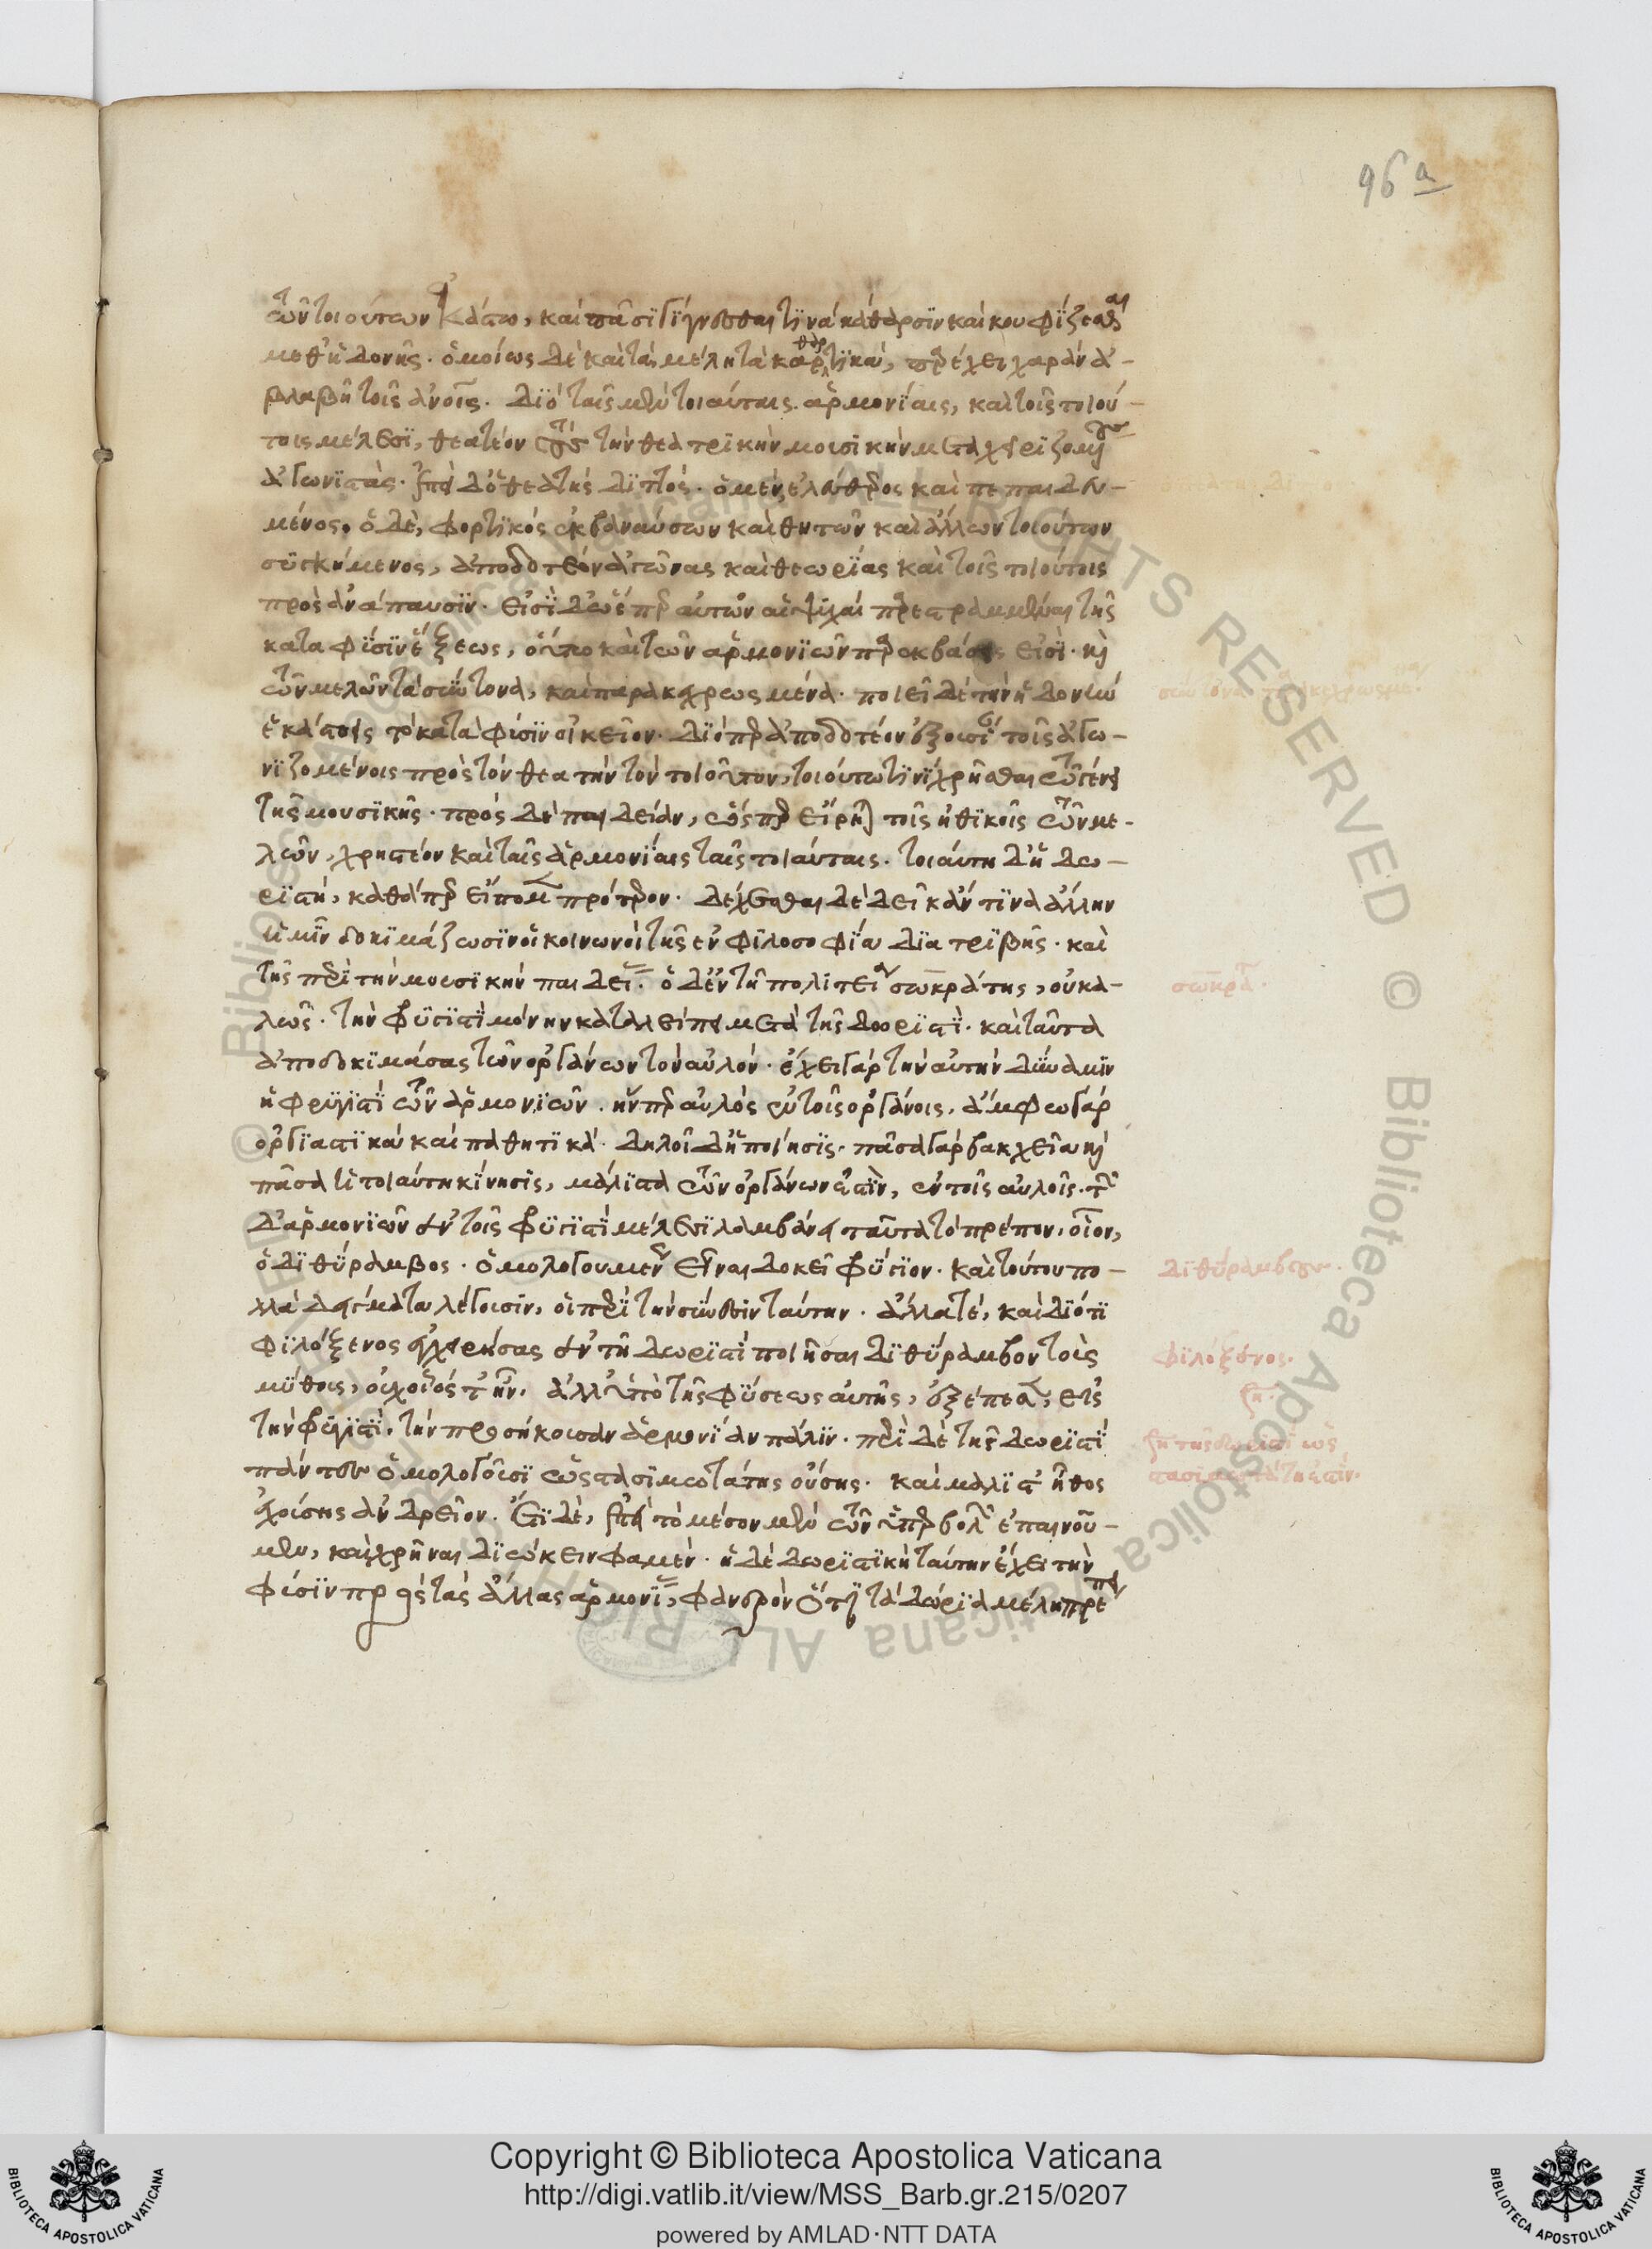 96 a
τῶν τοιούτων ἑκάστω, καὶ πᾶσι γίγνεσθαι τινὰ κάθαρσιν καὶ κουφίζεσθαι
μεθ' ἡδονῆς. ὁμοίως δὲ καὶ τὰ μέλη τὰ καθαρτικὰ, παρέχει χαρὰν ἀ-
βλαβῆ τοῖς ἀνοις. διὸ ταῖς μὲν τοιαύταις ἁρμονίαις, καὶ τοῖς τοιού-
τοις μέλεσι, θεατέον τοὺς τὴν θεατρικὴν μουσικὴν μεταχειριζομένους
ἀγωνιστάς. ἐπεὶ δ' ὁ θεατὴς διττός. ὁ μὲν ἐλεύθερος καὶ πεπαιδευ-
μένος, ὁ δὲ, φορτικὸς ἐκ βαναύσων καὶ θητῶν καὶ ἄλλων τοιούτων
συγκείμενος, ἀποδοτέον ἀγῶνας καὶ θεωρίας καὶ τοῖς τοιούτοις
πρὸς ἀνάπαυσιν. εἰσὶ δ' ὥσπερ αὐτῶν αἱ ψυχαὶ παρεστραμμέναι τῆς
κατὰ φύσιν ἕξεως, οὕτω καὶ τῶν ἁρμονιῶν παρεκβάσεις εἰσὶ. καὶ
τῶν μελῶν τὰ σύντονα, καὶ παρακεχρωσμένα. ποιεῖ δὲ τὴν ἡδονὴν
ἑκάστοις τὸ κατὰ φύσιν οἰκεῖον. διόπερ ἀποδοτέον ἐξουσίαν τοῖς ἀγω-
νιζομένοις πρὸς τὸν θεατὴν τὸν τοιοῦτον, τοιούτω τινὶ χρῆσθαι τῶ γένει
τῆς μουσικῆς. πρὸς δὲ παιδείαν, ὥσπερ εἴρηται τοῖς ἠθικοῖς τῶν με-
λῶν, χρηστέον καὶ ταῖς ἁρμονίαις ταῖς τοιαύταις. τοιαύτη δ' ἡ δω-
ριστὶ, καθάπερ εἴπομεν πρότερον. δέχεσθαι δὲ δεῖ κἄν τινα ἄλλην
ἡμῖν δοκιμάζωσιν οἱ κοινωνοὶ τῆς ἐν φιλοσοφία διατριβῆς. καὶ
τῆς περὶ τὴν μουσικὴν παιδείας. ὁ δ' ἐν τῆ πολιτεία σωκράτης, οὐ κα-
λῶς. τὴν φρυγιστὶ μόνην καταλείπει μετὰ τῆς δωριστὶ. καὶ ταῦτα
ἀποδοκιμάσας τῶν ὀργάνων τὸν αὐλόν. ἔχει γὰρ τὴν αὐτὴν δύναμιν
ἡ φρυγιστὶ τῶν ἁρμονιῶν. ἥνπερ αὐλὸς ἐν τοῖς ὀργάνοις. ἄμφω γὰρ
ὀργιαστικὰ καὶ παθητικὰ. δηλοῖ δ' ἡ ποίησις. πᾶσα γὰρ βακχεία καὶ
πᾶσα ἡ τοιαύτη κίνησις, μάλιστα τῶν ὀργάνων ἐστὶν, ἐν τοῖς αὐλοῖς. τῶν
δ' ἁρμονιῶν ἐν τοῖς φρυγιστὶ μέλεσι λαμβάνει ταῦτα τὸ πρέπον. οἷον,
ὁ διθύραμβος. ὁμολογουμένως εἶναι δοκεῖ φρύγιον. καὶ τούτου πο-
λλὰ παραδείγματα λέγουσιν, οἱ περὶ τὴν σύνεσιν ταύτην. ἄλλα τὲ, καὶ διότι
φιλόξενος ἐγχειρήσας ἐν τῆ δωριστὶ ποιῆσαι διθύραμβον τοὺς
μύθους, οὐχ οἷός τ' ἦν. ἀλλ' ὑπὸ τῆς φύσεως αὐτῆς, ἐξέπεσεν εἰς
τὴν φρυγιστὶ, τὴν προσήκουσαν ἁρμονίαν πάλιν. περὶ δὲ τῆς δωριστὶ
πάντες ὁμολογοῦσι ὡς στασιμωτάτης οὔσης. καὶ μάλιστ' ἦθος
ἐχούσης ἀνδρεῖον. ἔτι δὲ, ἐπεὶ τὸ μέσον μὲν τῶν ὑπερβολῶν ἐπαινοῦ-
μεν, καὶ χρῆναι διώκειν φαμέν. ἡ δὲ δωριστικὴ ταύτην ἔχει τὴν
φύσιν πρὸς τὰς ἄλλας ἁρμονίας, φανερὸν ὅτι τὰ δώρια μέλη πρέπει
σωκράτ.
διθύραμβος.
φιλόξενος.
ση.
ση τῆς δωριστὶ ὡς
στασιμωτάτη ἐστίν.
© Biblioteca Apostolica Vaticana ALL RIGHTS RESERVED
Copyright © Biblioteca Apostolica Vaticana
http://digi.vatlib.it/view/MSS_Barb.gr.215/0207
powered by AMLAD·NTT DATA
BIBLIOTECA APOSTOLICA VATICANA
BIBLIOTECA APOSTOLICA VATICANA